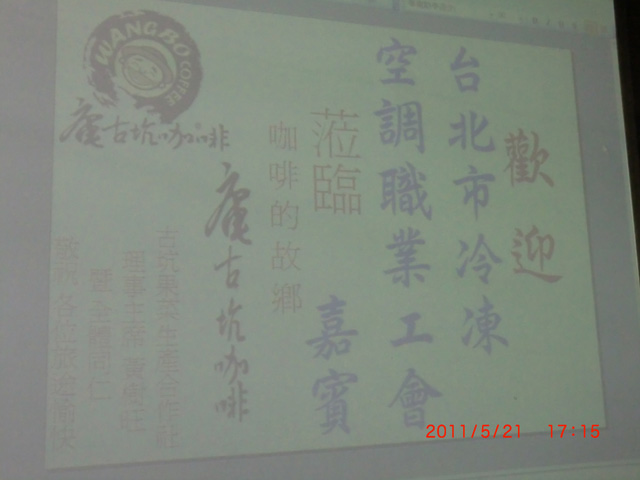 歡迎
台北市冷凍
空調職業工會
蒞臨 嘉賓
咖啡的故鄉
古坑咖啡
WANGBO COFFEE
古坑咖啡
古坑農業生產合作社
理事主席
暨全體同仁
敬祝各位旅途愉快
2011/5/21 17:15